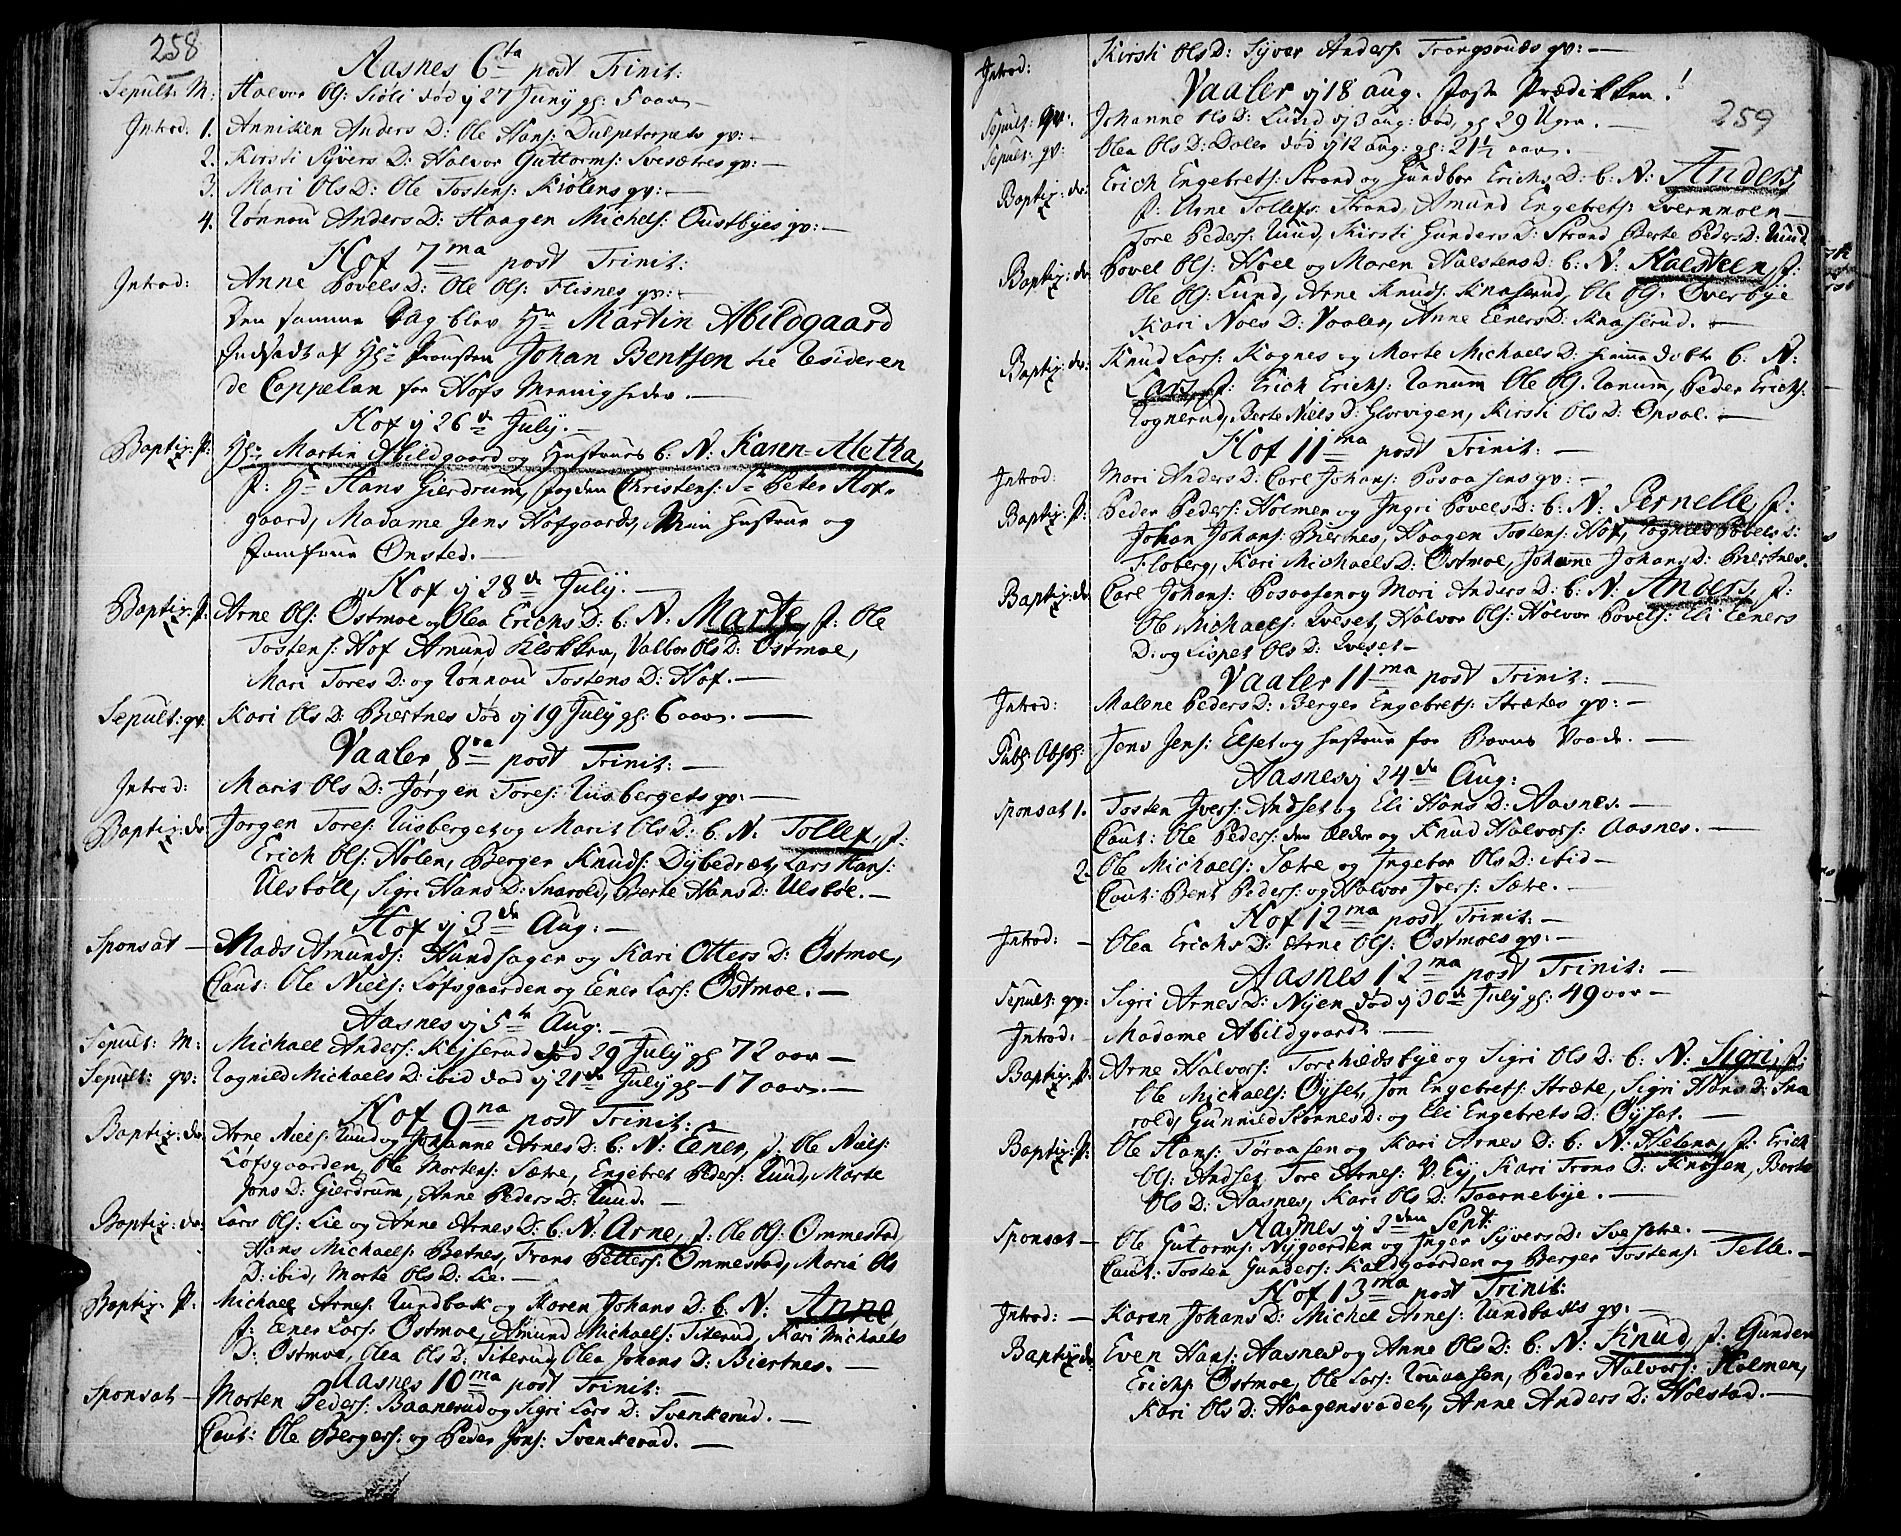 258
Aasnes 6ta post Trinit:
Sepult: M: Halvor Ols: Siøli død d 27 Juny gl: 5 aar —
Introd. 1. Anniken Anders D: Ole Hans: Dulpetorpets qv: —
2. Kirsti Syvers D: Halvor Guttorms: Svesætres qv: —
3. Mari Ols D: Ole Tostens: Kiølens qv: —
4. Rønnou Anders D: Haagen Michels: Oustbyes qv: —
Hof 7ma post Trinit:
Introd: Anne Povels D: Ole Ols: Flisnes qv: —
Den samme Dag blev Hr Martin Abildgaard
Indsadt af Hr Provsten Johan Bentsen til Resideren
de Cappelan for Hofs Menigheder. —
Hof d 26de July. —
Baptiz: p: Hr Martin Abildgaard og Hustrues b: N: Karen-Aletha,
f: Hr Hans Gierdrum, fogden Christens: Sr Peter Hof-
gaard, Madame Jens Hofgaards, Min Hustrue og
Jomfrue Onsted. —
Hof d 28de July. —
Baptiz: p: Arne Ols: Østmoe og Olea Erichs D: b: N: Marte, f: Ole
Tostens: Hof Amund Klokker, Valbor Ols D: Østmoe,
Mari Tores D: og Rønnou Tostens D: Hof. —
Sepult: qv: Kari Ols D: Biertnes død d 19 July gl: 6 aar. —
Vaaler 8va post Trinit: —
Introd: Marit Ols D: Jørgen Tores: Risbergets qv: —
Baptiz: dr: Jørgen Tores: Risberget og Marit Ols D: b: N: Tollef, f:
Erich Ols: Holen, Berger Knuds: Dybedræt, Lars Hans:
Ulsbøll, Sigri Hans D: Snarold, Berte Hans D: Ulsbøl. —
Hof d 3de Aug: —
Sponsat — Mads Amunds: Hundsager og Kari Otters D: Østmoe,
Caut: Ole Niels: Løfsgaarden og Eener Lars: Østmoe. —
Aasnes d 5te Aug: —
Sepult: M: Michael Anders: Kejserud død 29 July gl 72 aar —
Sepult: qv: Rognild Michaels D: ibid død d 21de July gl — 17 aar. —
Hof 9na post Trinit: —
Baptiz: dr: Arne Niels: Ruud og Johanne Arnes D: b: N: Eener, f: Ole Niels:
Løfsgaarden, Ole Mortens: Sætre, Engebret Peders: Ruud, Marte
Jons D: Gierdrum, Anne Peders D: Ruud. —
Baptiz: dr: Lars Ols: Lie og Anne Arnes D: b: N: Arne, f: Ole Ols: Ommestad,
Hans Michaels: Betnes, Frans Petters: Ommestad, Maria Ols
D: ibid, Marte Ols D: Lie. —
Baptiz. p: Michael Arnes: Rundbak og Karen Johans D: b: N: Anne,
f: Eener Lars: Østmoe, Amund Michaels: Titerud, Kari Michaels
D: Østmoe, Olea Ols D: Titerud, Olea Johans D: Biertnes. —
Aasnes 10ma post Trinit: —
Sponsat — Morten Peders: Baanerud og Sigri Lars D: Svenkerud. —
Caut: Ole Bergers: og Peder Jons: Svenkerud. —
Introd: Kirsti Ols D: Syver Anders: Trangsrudes qv: —
Vaaler d 18 aug. Post Prædikken!
259
Sepult: qv: Johanne Ols D: Lund d 3 aug: død, gl 29 Uger. —
Sepult: qv: Olea Ols D: Dalen død d 12 aug: gl: 21½ aar. —
Baptiz: dr: Erich Engebrets: Strand og Gundbor Erichs D: b: N: Anders
f: Arne Tollefs: Strand, Amund Engebrets: Qvernmoen —
Tore Peders: Ruud, Kirsti Gunders D: Strand Berte Peders D: Ruud.
Baptiz: dr: Povel Ols: Hoel og Maren Halstens D: b: N: Halsteen, f:
Ole Ols: Lund, Arne Knuds: Knaserud, Ole Ols: Overbye
Kari Noes D: Vaaler, Anne Eeners D: Knaserud. —
Baptiz: dr: Knud Lars: Kognes og Marte Michaels D: hiemme døbte b: N:
Lars, f: Erich Erichs: Ranum Ole Ols: Ranum, Peder Erichs:
Rognerud, Berte Niels D: Glorvigen, Kirsti Ols D: Opsal. —
Hof 11ma post Trinit: —
Introd: Mari Anders D: Carl Johans: Posaasens qv: —
Baptiz: p: Peder Peders: Holmen og Ingri Povels D: b: N: Pernelle, f:
Johan Johans: Biertnes, Haagen Tostens: Hof, Rognild Povels D:
Floberg, Kari Michaels D: Østmoe, Johanne Johans D: Biertnes.
Baptiz: dr Carl Johans: Posaasen og Mari Anders D: b: N: Anders, f:
Ole Michaels: Qveset, Halvor Ols: Halvor Povels: Eli Eeners
D: og Lispet Ols D: Qveset —
Vaaler 11ma post Trinit: —
Introd: Malene Peders D: Berger Engebrets: Strætes qv: —
Publ: Absol: Jens Jens: Elset og Hustrue for Barns Vaade. —
Aasnes d 24de Aug:
Sponsat 1. Tosten Ivers: Andset og Eli Hans D: Aasnes. —
Caut: Ole Peders: den Ældre og Knud Halvors: Aasnes. —
2. Ole Michaels: Sætre og Ingebor Ols D: ibid —
Caut: Bent Peders: og Halvor Ivers: Sætre. —
Hof 12ma post Trinit. —
Introd: — Olea Erichs D: Arne Ols: Østmoes qv: —
Aasnes 12ma post Trinit: —
Sepult: qv: Sigri Arnes D: Nyen død d 30de July gl: 49 aar —
Introd. — Madame Abildgaard. —
Baptiz: p: Arne Halvors: Torkildsbye og Sigri Ols D: b: N: Sigri, f:
Ole Michaels: Øyset, Jon Engebrets: Stræte, Sigri Hans D: Sna
rold, Gunnild Stornes D: og Eli Engebrets D: Øyset. —
Baptiz: p: Ole Hans: Tøraasen og Kari Arnes D: b: N: Helena, f: Erich
Ols: Andset, Tore Arnes: V: Ey, Kari Frans D: Knøsen, Berte
Ols D: Aasnes, Kari Ols D: Taarnebye. —
Aasnes d 2den Sept:
Sponsat — Ole Gutorms: Nygaarden og Inger Syvers D: Svesætre. —
Caut: Tosten Gunders: Kaldgaarden og Berger Tostens: Telle. —
Hof 13ma post Trinit:
Introd: — Karen Johans D: Michel Arnes: Rundbaks qv: —
Baptiz: dr Even Hans: Aasnes og Anne Ols D: b: N: Knud, f: Gunder
Erichs: Østmoe, Ole Lars: Rouaasen, Peder Halvors: Holmen,
Kari Ols D: Haagensvadet, Anne Anders D: Holstad. —